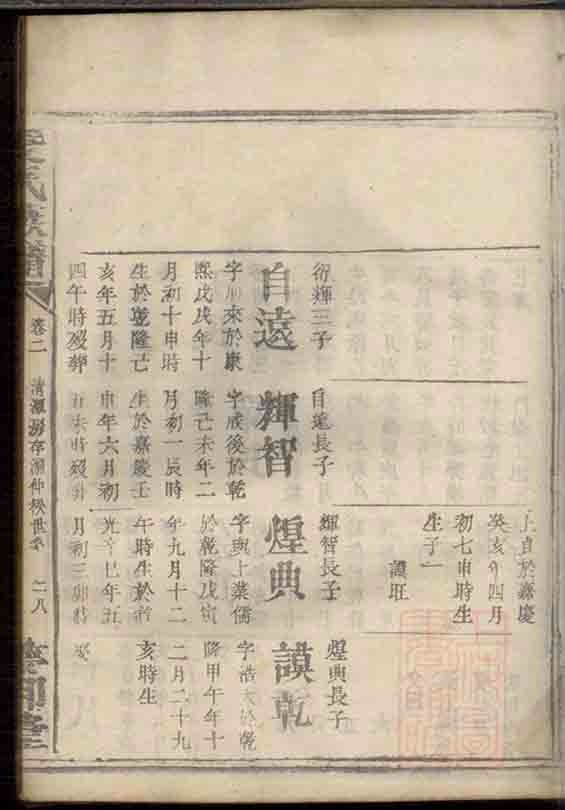 上貞於嘉慶
癸亥年四月
初七申時生
生子一
謨旺
衍輝三子
自遠
字朋來於康
熙戊戌年十
月初十申時
生於乾隆己
亥年五月十
四午時歿葬
自遠長子
輝智
字成後於乾
隆己未年二
月初一辰時
生於嘉慶壬
申年六月初
五未時歿葬
輝智長子
煌典
字與上業儒
於乾隆戊寅
年九月十二
午時生於道
光辛巳年五
月初三卯時
煌典長子
謨乾
字浩大於乾
隆甲午年十
二月二十九
亥時生
氏族譜
卷二
清源房存源仲秩世系
二八